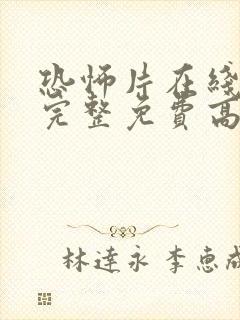 恐怖片在綫
完整免費高
林達永 李惠成